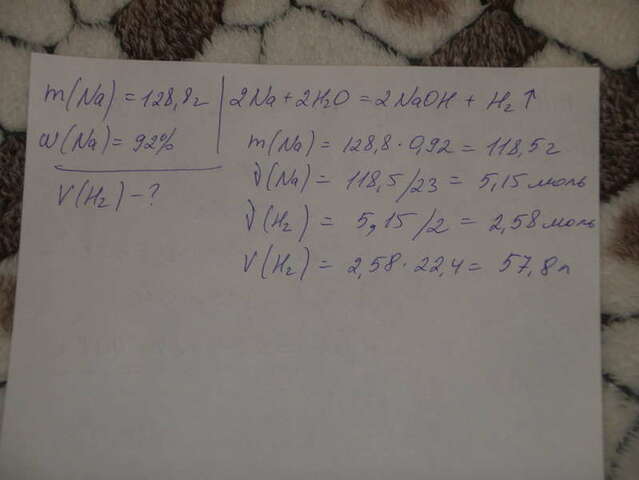 m(Na) = 128,8г
ω(Na) = 92%
V(H₂) - ?
2Na + 2H₂O = 2NaOH + H₂↑
m(Na) = 128,8 · 0,92 = 118,5 г
ν(Na) = 118,5/23 = 5,15 моль
ν(H₂) = 5,15/2 = 2,58 моль
V(H₂) = 2,58 · 22,4 = 57,8 л